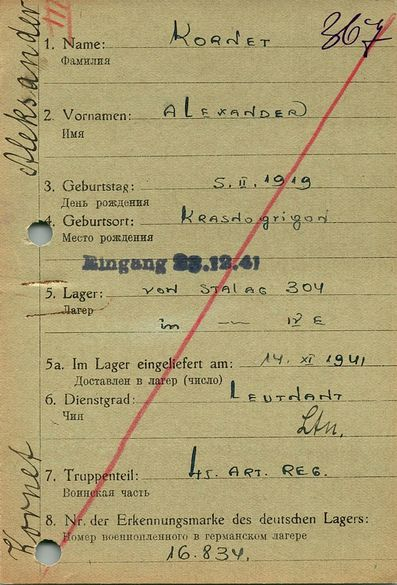 Aleksander
Kornet
III
367
1. Name: KORNET
Фамилия
2. Vornamen: ALEXANDER
Имя
3. Geburtstag: 5. II. 1919
День рождения
4. Geburtsort: KRASNOGRIGON
Место рождения
Eingang 23.12.41
5. Lager: VON STALAG 304
Лагер
im — IV E
5a. Im Lager eingeliefert am: 14. XI 1941
Доставлен в лагер (число)
6. Dienstgrad: LEUTNANT
Чин
Ltn.
7. Truppenteil: 45. ART. REG.
Воинская часть
8. Nr. der Erkennungsmarke des deutschen Lagers:
Номер военнопленного в германском лагере
16.834.